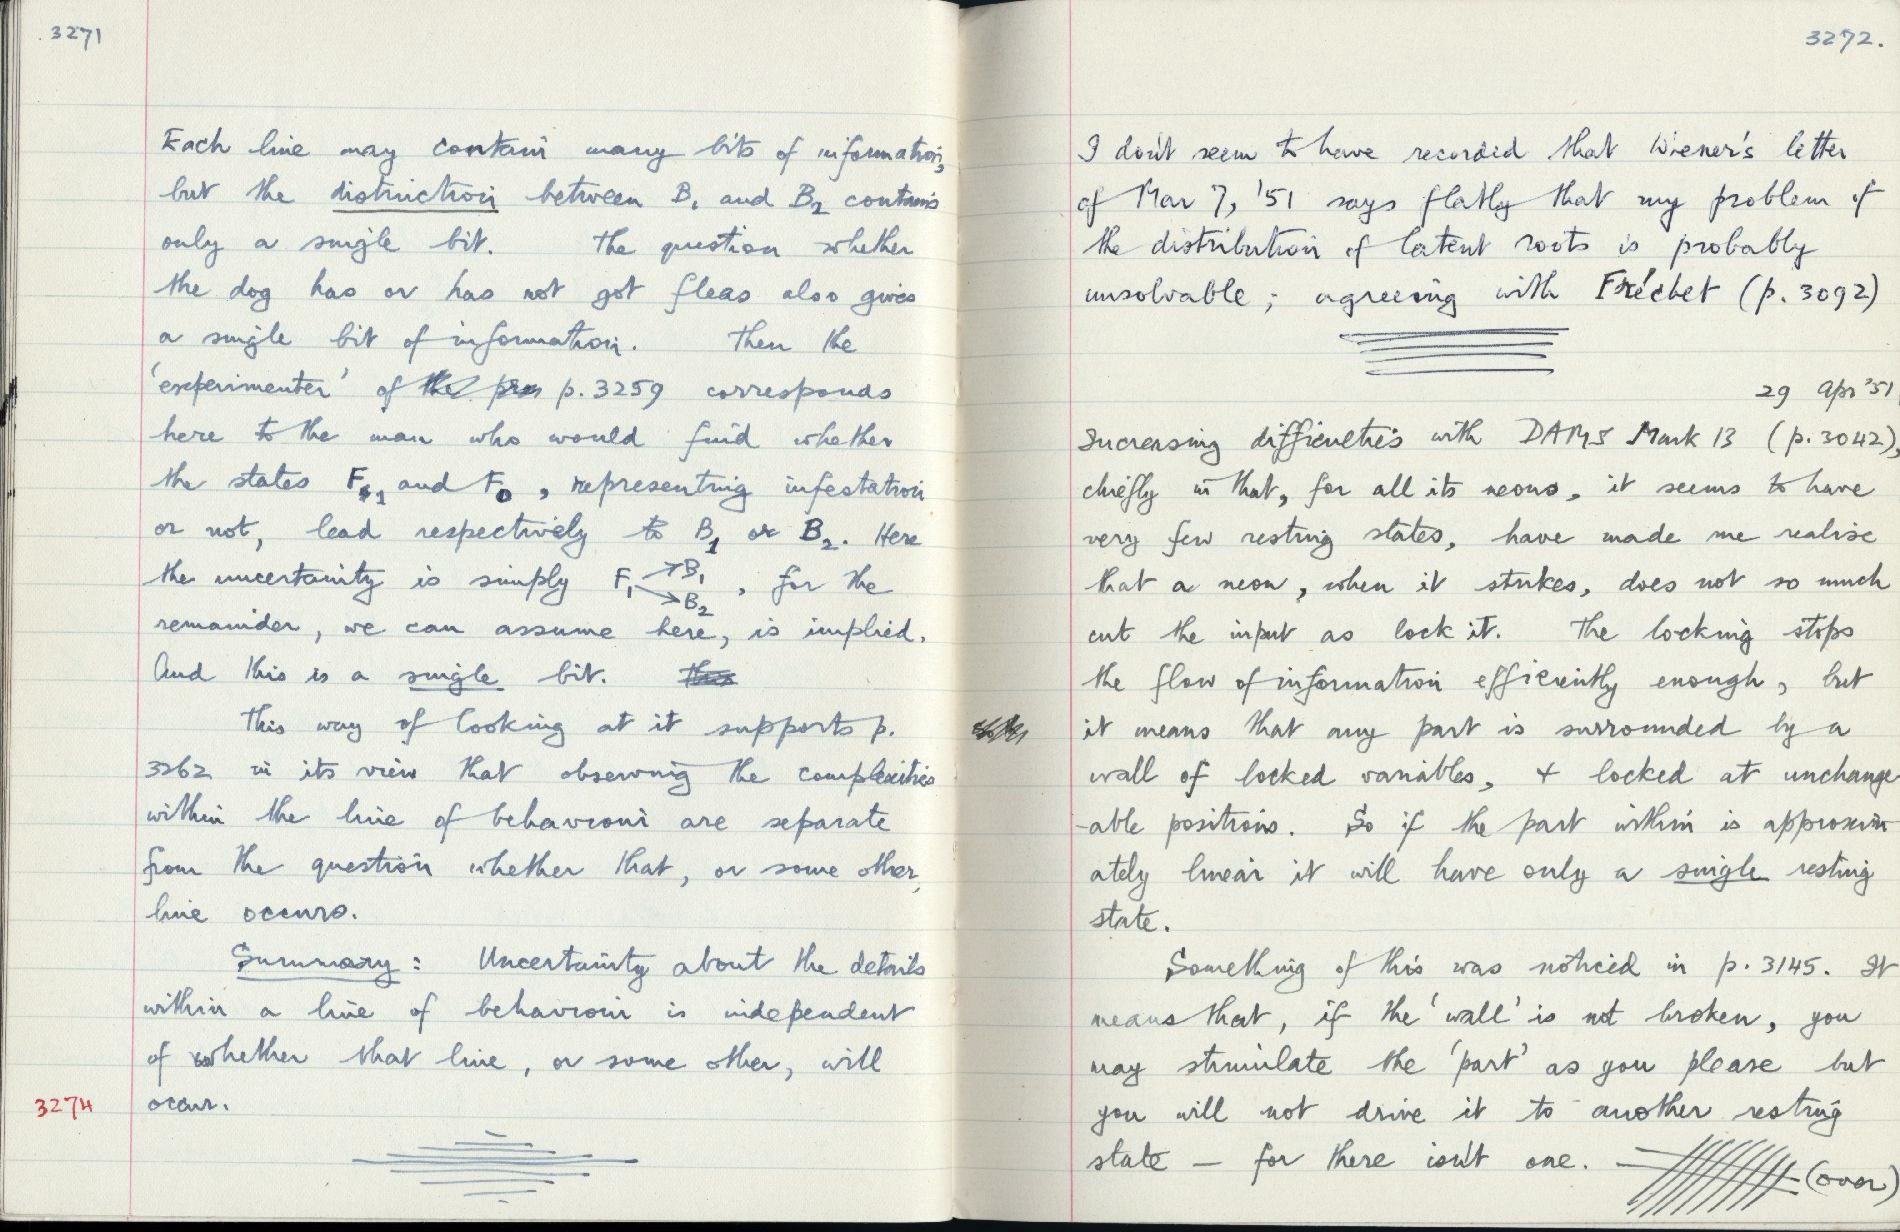 3271
Each line may contain many bits of information,
but the distinction between B1 and B2 contains
only a single bit. The question whether
the dog has or has not got fleas also gives
a single bit of information. Then the
'experimenter' of p. 3259 corresponds
here to the man who would find whether
the states F1 and F0, representing infestation
or not, lead respectively to B1 or B2. Here
the uncertainty is simply F1 → B1 → B2, for the
remainder, we can assume here, is implied.
And this is a single bit.
This way of looking at it supports p.
3262 in its view that observing the complexities
within the line of behaviour are separate
from the question whether that, or some other,
line occurs.
Summary: Uncertainty about the details
within a line of behaviour is independent
of whether that line, or some other, will
3274 occur.
3272.
I don't seem to have recorded that Wiener's letter
of Mar 7, '51 says flatly that my problem of
the distribution of latent roots is probably
unsolvable; agreeing with Fréchet (p. 3092)
29 Apr '51
Increasing difficulties with DAMS Mark 13 (p. 3042),
chiefly in that, for all its neons, it seems to have
very few resting states, have made me realise
that a neon, when it strikes, does not so much
cut the input as lock it. The locking stops
the flow of information efficiently enough, but
it means that any part is surrounded by a
wall of locked variables, + locked at unchange
-able positions. So if the part within is approxim
ately linear it will have only a single resting
state.
Something of this was noticed in p. 3145. It
means that, if the 'wall' is not broken, you
may stimulate the 'part' as you please but
you will not drive it to another resting
state — for there isn't one. — (over)